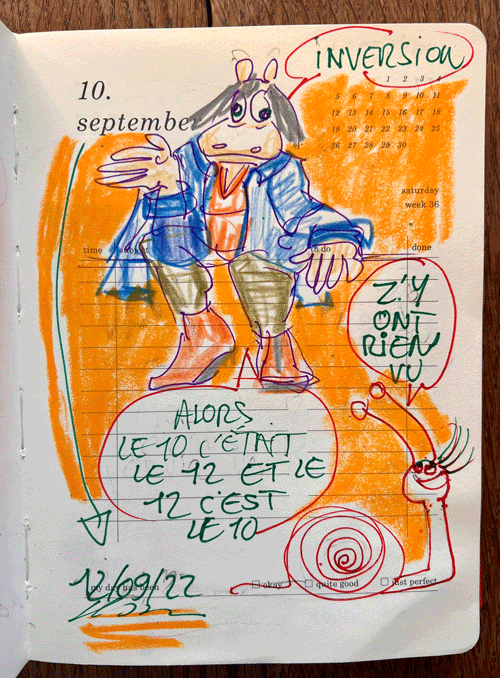 INVERSION
10.
september
1 2 3 4
5 6 7 8 9 10 11
12 13 14 15 16 17 18
19 20 21 22 23 24 25
26 27 28 29 30
saturday
week 36
time
subject
to do
done
Z'Y
ONT
RIEN
VU
ALORS
LE 10 C'ÉTAIT
LE 12 ET LE
12 C'EST
LE 10
12/09/22
my day has been
okay
quite good
just perfect